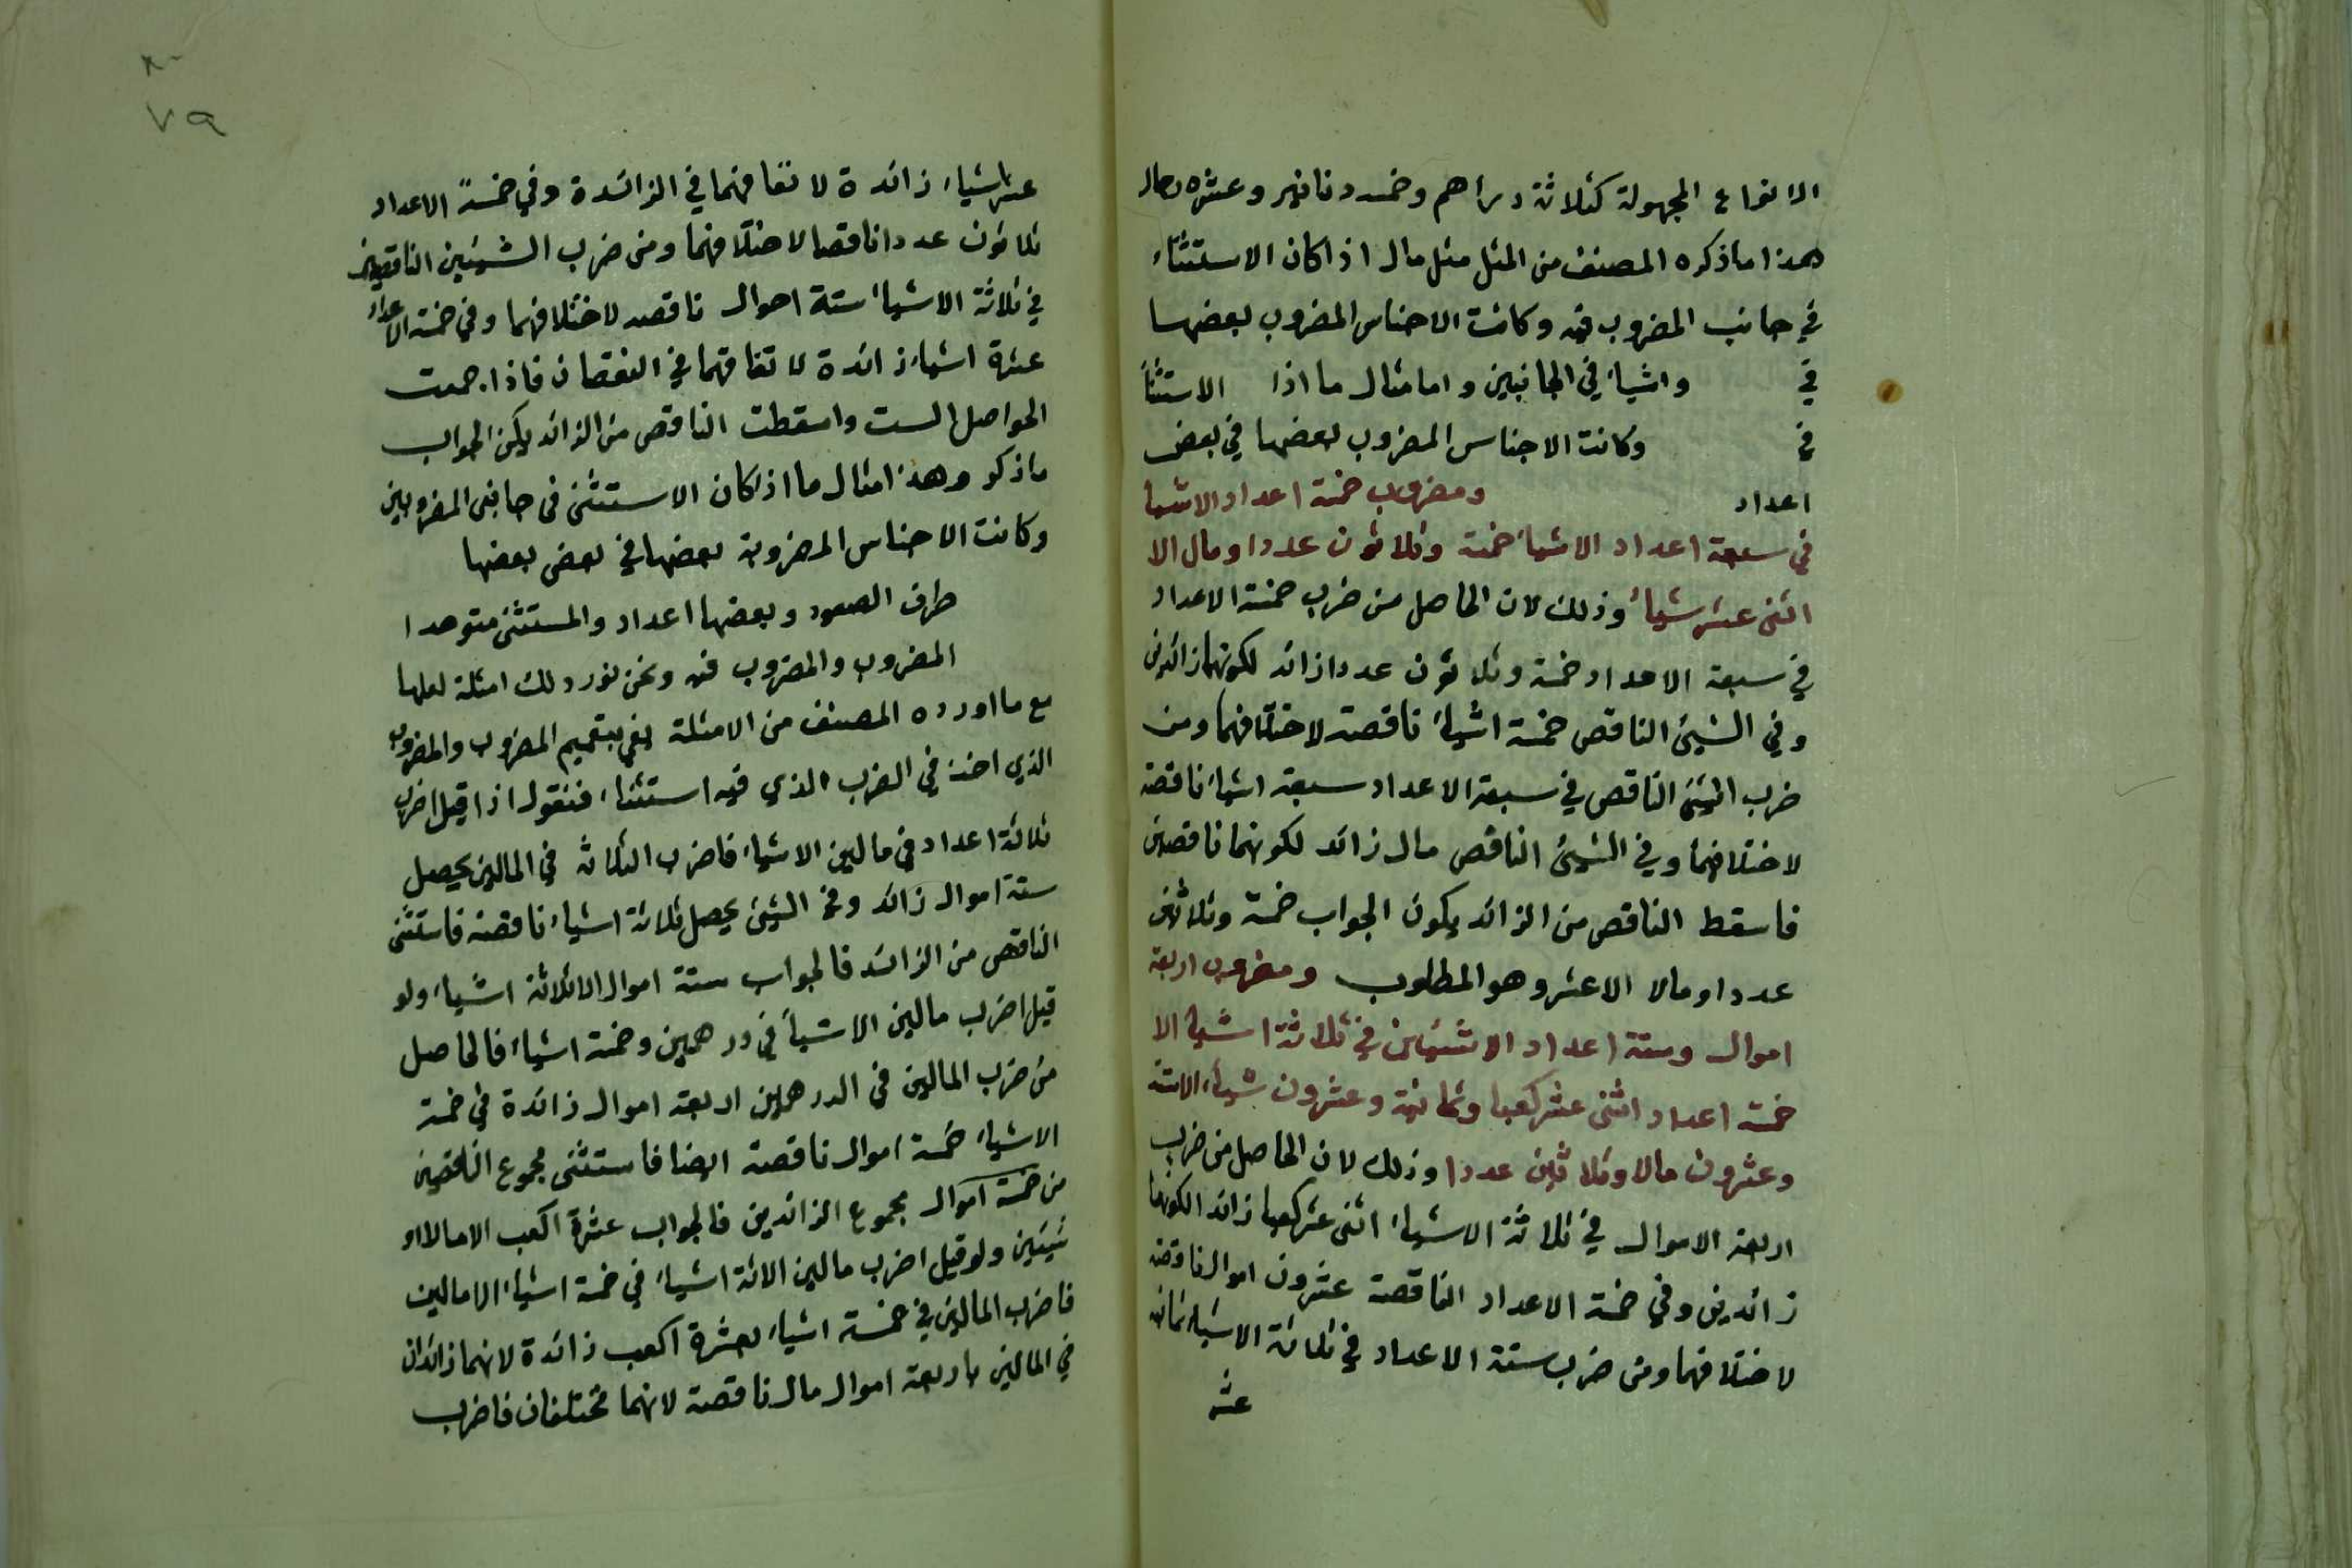 الانواع المجهولة كثلاثة دراهم وخمسة دنانير وعشرة رجال
هذا ما ذكره المصنف من المثل مثل مال اذا كان الاستثناء
في جانب المضروب فيه وكانت الاجناس المضروب بعضها
في واشياء في الجانبين واما مثال ما اذا الاستثنأ
في وكانت الاجناس المضروب بعضها في بعض
اعداد ومضروب خمسة اعداد الاشيا
في سبعة اعداد الاشياء خمسة وثلاثون عددا ومال الا
اثنى عشر شياء وذلك لان الحاصل من ضرب خمسة الاعداد
في سبعة الاعداد خمسة وثلاثون عددا زائد لكونهما زائدين
وفي الشيئ الناقص خمسة اشياء ناقصة لاختلافهما ومن
ضرب الشيئ الناقص في سبعة الاعداد سبعة اشياء ناقصة
لاختلافهما وفي الشيئ الناقص مال زائد لكونهما ناقصين
فاسقط الناقص من الزائد يكون الجواب خمسة وثلاثين
عددا ومالا الا عشر وهو المطلوب ومضروب اربعة
اموال وستة اعداد الا شيئين في ثلاثة اشياء الا
خمسة اعداد اثنى عشر كعبا وثمانية وعشرون شياء الا ستة
وعشرون مالا وثلاثين عددا وذلك لان الحاصل من ضرب
اربعة الاموال في ثلاثة الاشياء اثنى عشر كعبا زائدا لكونهما
زائدين وفي خمسة الاعداد الناقصة عشرون اموال ناقصة
لاختلافهما ومن ضرب ستة الاعداد في ثلاثة الاشياء ثمانية
عشر
٧٩
عشر اشياء زائدة لاتفاقهما في الزائدة وفي خمسة الاعداد
ثلاثون عددا ناقصا لاختلافهما ومن ضرب الشيئين الناقصين
في ثلاثة الاشياء ستة اموال ناقصه لاختلافهما وفي خمسة الاعداد
عشرة اشياء زائدة لاتفاقهما في النقصان فاذا جمعت
الحواصل الست واسقطت الناقص من الزائد يكن الجواب
ما ذكر وهذا مثال ما اذا كان الاستثنى فى جانبى المضروبين
وكانت الاجناس المضروبة بعضها في بعض بعضها
طرف الصعود وبعضها اعداد والمستثنى متوحدا
المضروب والمضروب فيه ونحن نورد لك امثلة لعلها
مع ما اورده المصنف من الامثلة يفي بتعميم المضروب والمضروب
الذي اخذ في الضرب الذي فيه استثناء فنقول اذا قيل اضرب
ثلاثة اعداد في مالين الا شياء فاضرب الثلاثة في المالين يحصل
ستة اموال زائد وفي الشيئ يحصل ثلاثة اشياء ناقصة فاستثنى
الناقص من الزائد فالجواب ستة اموال الا ثلاثة اشياء ولو
قيل اضرب مالين الا شيأ في درهمين وخمسة اشياء فالحاصل
من ضرب المالين في الدرهمين اربعة اموال زائدة في خمسة
الاشياء خمسة اموال ناقصة ايضا فاستثنى مجموع الناقصين
من خمسة اموال مجموع الزائدين فالجواب عشرة اكعب الا مالا او
شيئين ولو قيل اضرب مالين الا ثلاثة اشياء في خمسة اشياء الا مالين
فاضرب المالين في خمسة اشياء بعشرة اكعب زائدة لانهما زائدان
في المالين باربعة اموال مال ناقصة لانهما مختلفان فاضرب